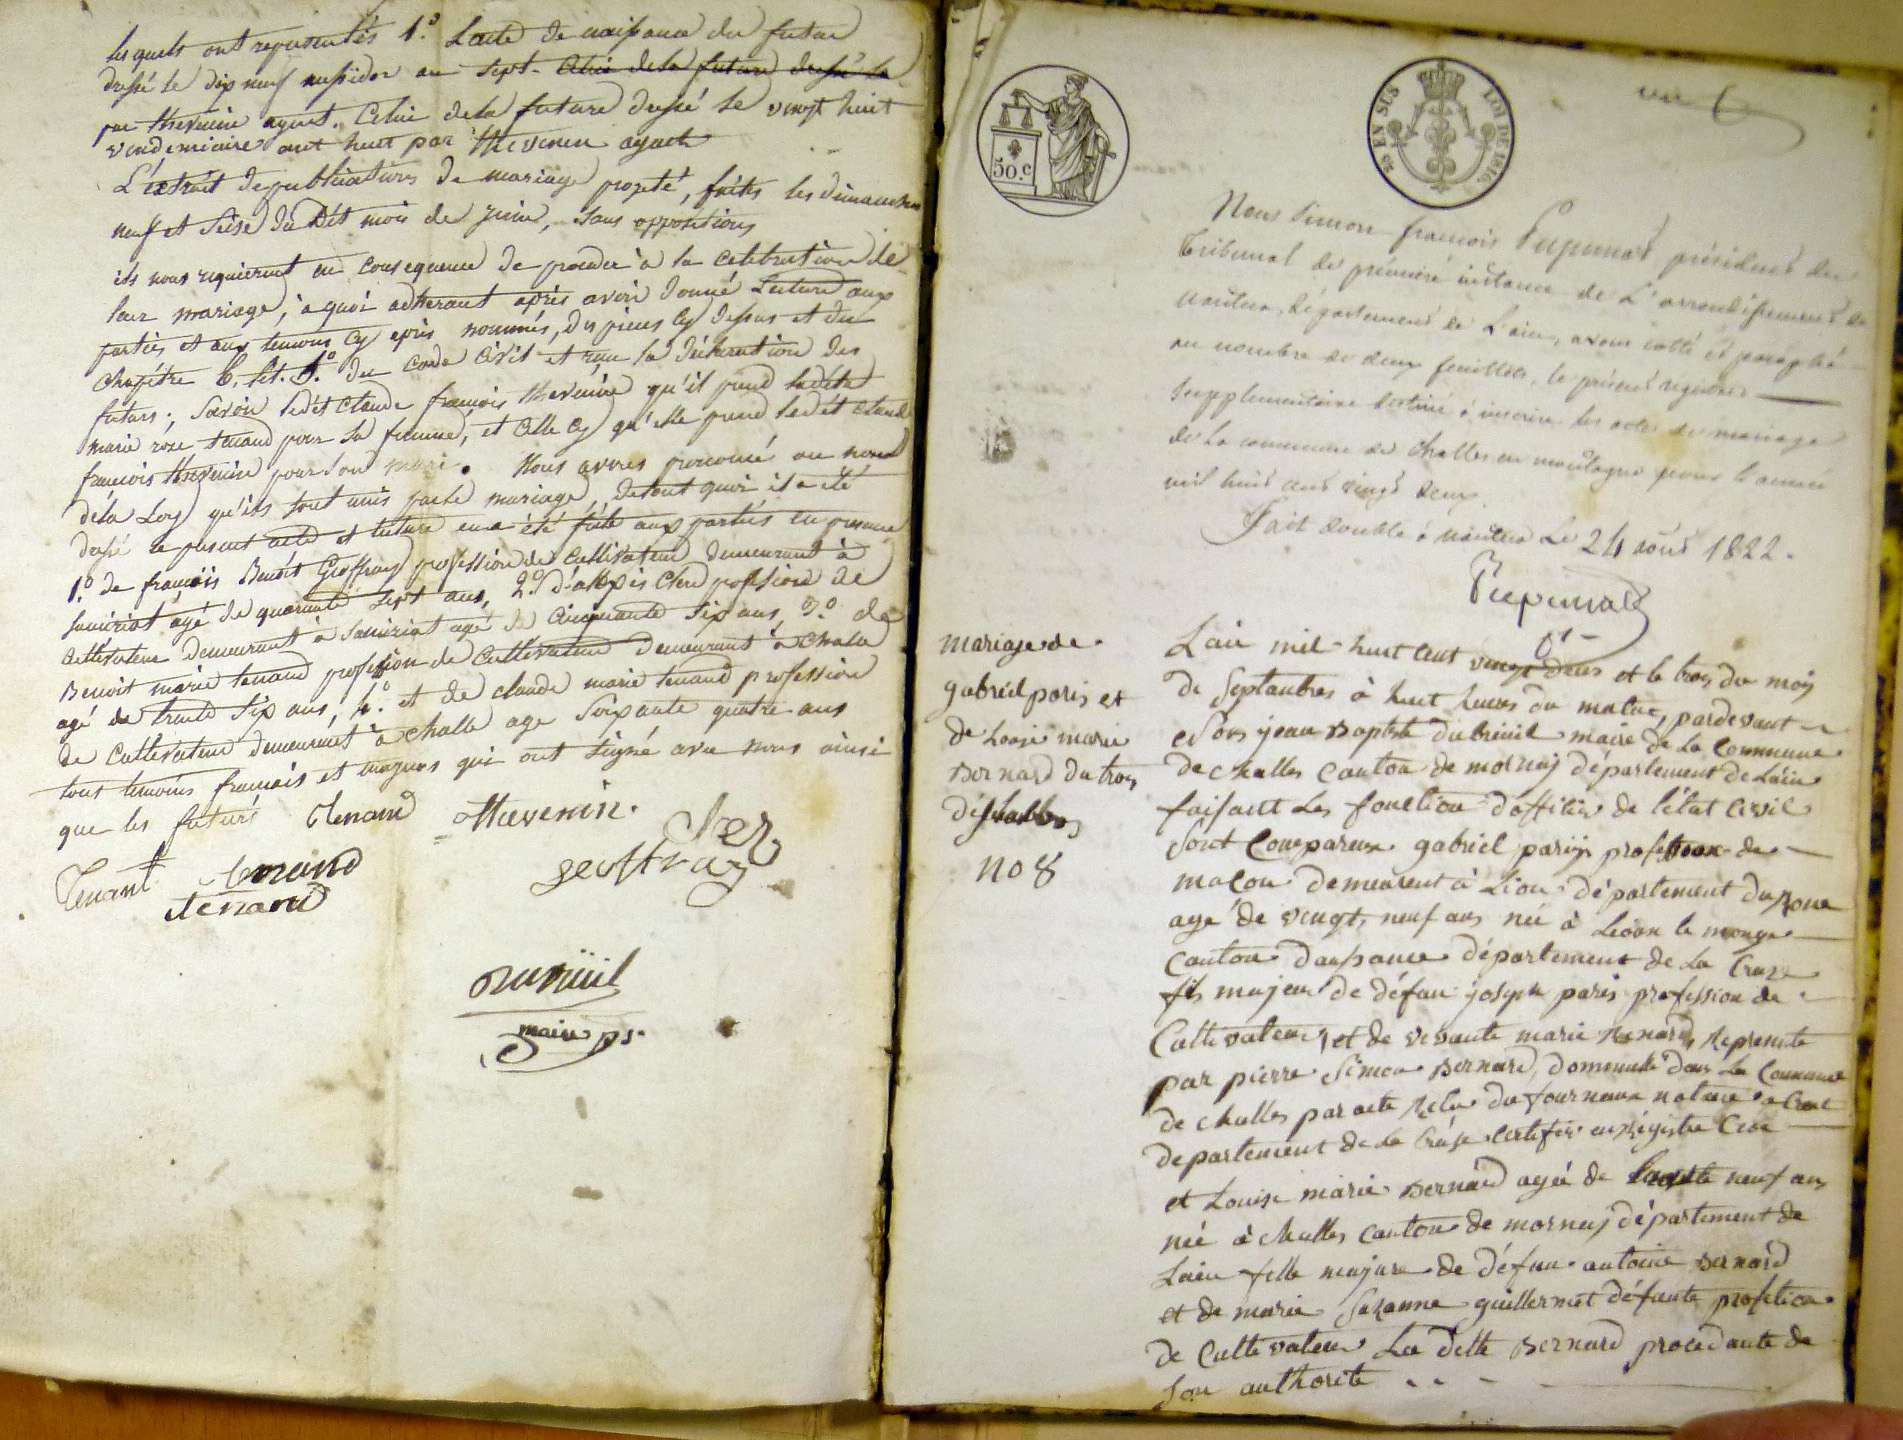 lesquels ont representés 1.° Lacte de naissance du futur
dressé le dix neuf messidor an sept. Celui de la future dressé le
par thevenin agent. Celui de la future dressé le vingt huit
vendemiaire ant huit par thevenin agent
L'éxtrait de publications de mariage projeté, faites les dimanches
neuf et seise du dét mois de juin, sans oppositions
ils nous requierent en consequence de proceder à la celebration de
leur mariage, à quoi adherant après avoir donné Lecture aux
parties et aux temoins cy après nommés, des pieces cy dessus et du
chapitre 6. tit. 5.° du code civil et reçu la déclaration des
futurs; savoir ledét claude françois thevenin qu'il prend ladéte
marie rose tenand pour sa femme, et celle cy qu'elle prend ledét claude
françois thevenin pour son mari. Nous avons prononcé au nom
déla Loy qu'ils sont unis par le mariage, de tout quoi il a été
dressé le present acte et lecture en a été faite aux parties en presence
1.° de françois Benoit Geoffray profession de cultivateur demeurant à
agé de quarante sept ans, 2.° d'alexis cher profession de
cultivateur demeurant à agé de cinquante six ans, 3.° de
Benoit marie tenand profession de cultivateur demeurant à challe
agé de trente six ans, 4.° et de claude marie tenand profession
de cultivateur demeurant à challe age soixante quatre ans
tous temoins français et majeurs qui ont signé avec nous ainsi
que les futurs Tenand Thevenin.
cher
geoffray
Tenant tenand
tenand
Dubriüil
maire ps.
50.C
EN SUS
LOI DE 1816
Nous Simon françois président du
Tribunal de première instance de L'arrondissement de
Nantua, Département de L'ain, avons cotté et paraphé
au nombre de deux feuillets, le présent registre
supplementaire destiné à inscrire les actes de mariage
de la commune de Challes en montagne pour l'année
mil huit cent vingt deux.
Fait double à Nantua Le 24 août 1822.
mariage de
gabriel paris et
de Louise marie
Bernard du trois
No 8
Lan mil huit cent vingt deux et le trois du mois
de Septambre à huit heures du matin, pardevant
Nous jean Baptiste dubreuil maire de la Commune
de challes canton de mornay département de Lain
faisant Les fonction d'offisier de l'état civil
Sont Comparus gabriel paris profession de
maçon demeurent à Lion département du Rone
agé de vingt neuf ans né à
canton département de La Creuse
fils majeur de défun joseph paris profession de
Cultivateur et de vivante marie Renard, Represente
par pierre Simon Bernard, dans La Commune
de challes par acte notaire a
departement de la Creuse
et Louise marie Bernard agée de neuf ans
née à challes canton de mornay département de
Lain fille majure de défun antoine Bernard
et de marie Suzanne guillermet défunte profetion
de Cultivateur La ditte Bernard procedante de
Son authorité